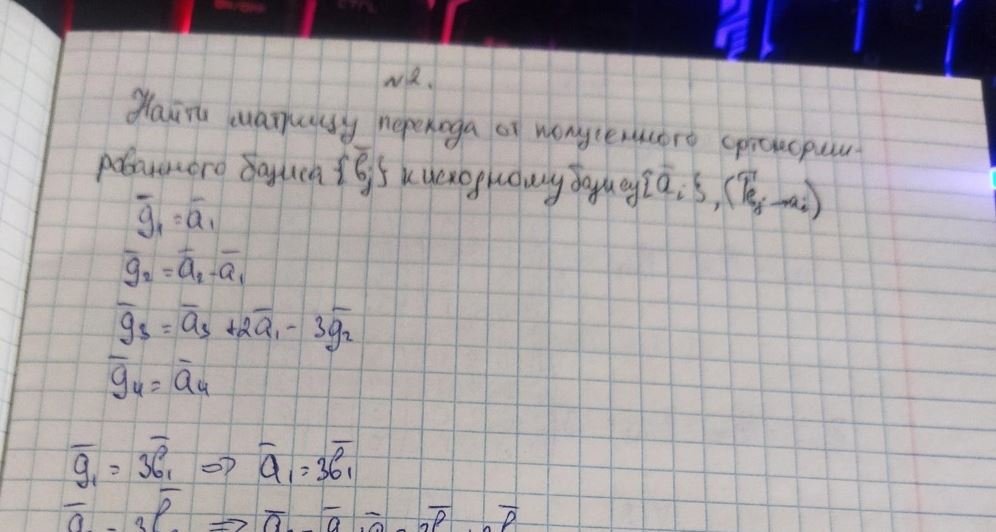 №2.
Найти матрицу перехода от полученного ортонорми-
рованного базиса {b̄ⱼ} к исходному базису {āᵢ}, (
ḡ₁ = ā₁
ḡ₂ = ā₂ - ā₁
ḡ₃ = ā₃ + 2ā₁ - 3ḡ₂
ḡ₄ = ā₄
ḡ₁ = 3b̄₁ => ā₁ = 3b̄₁